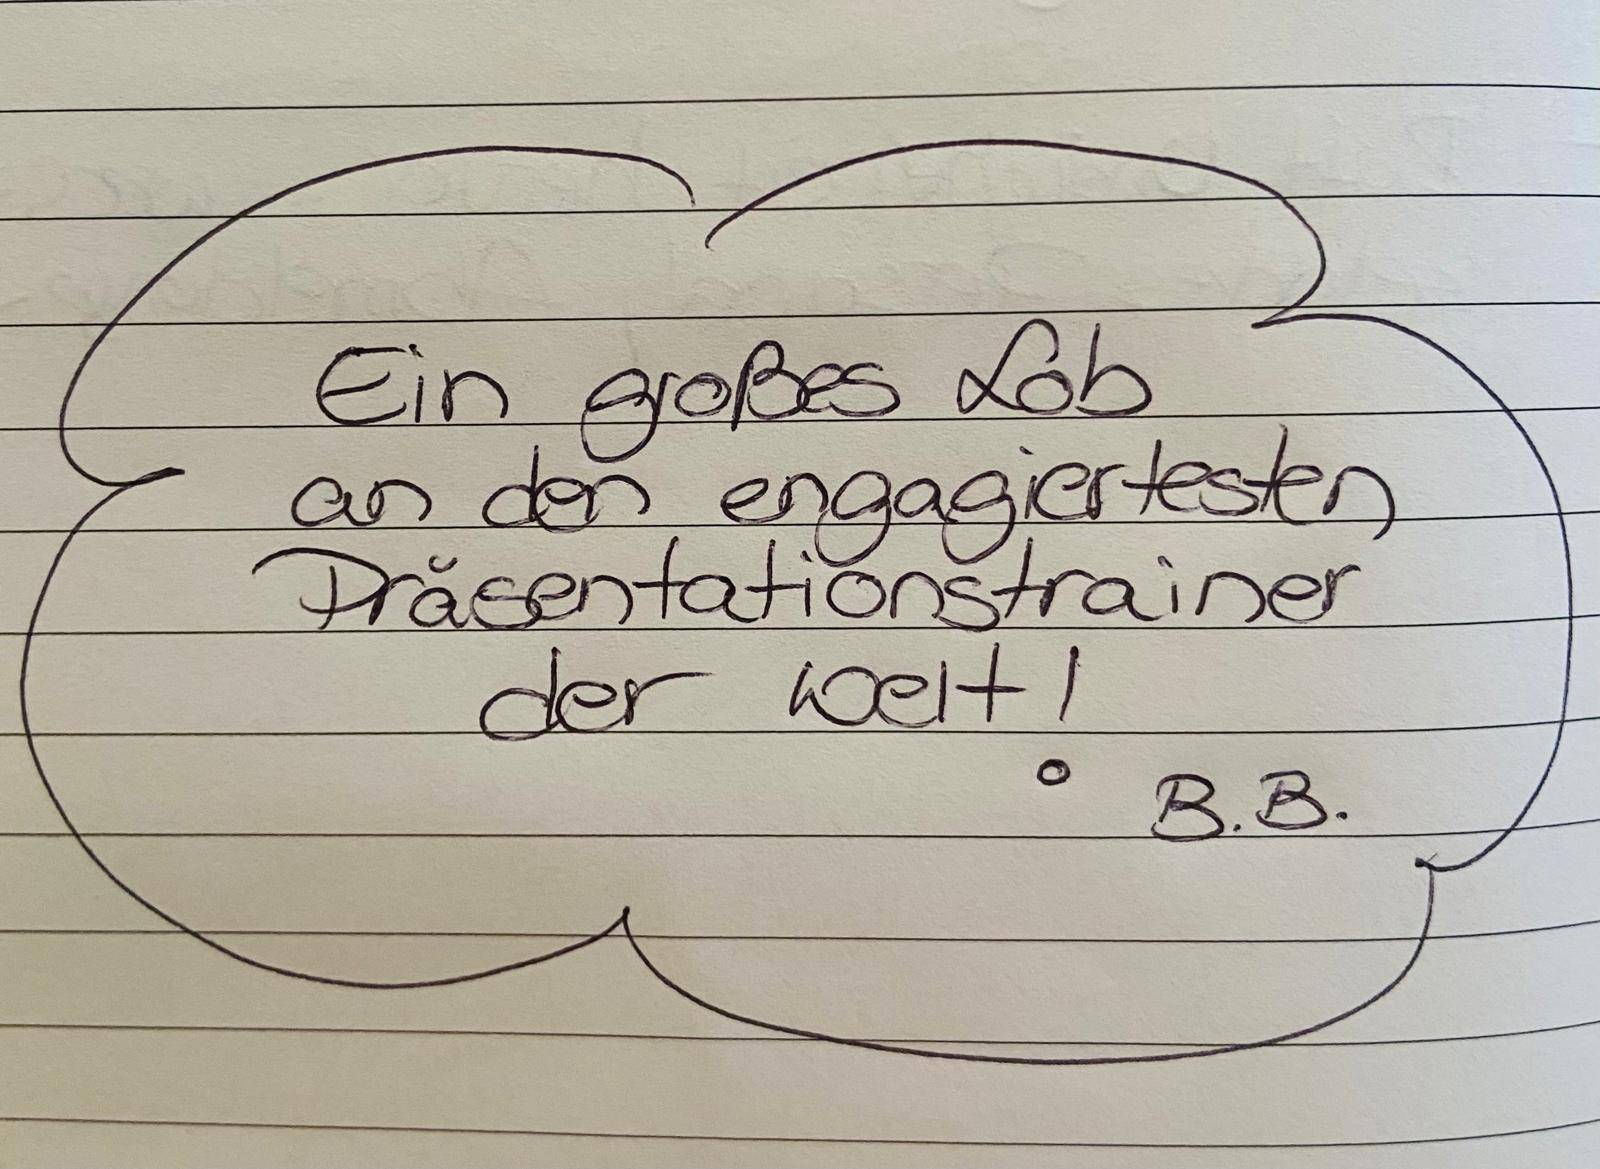 Ein großes Lob
an den engagiertesten
Präsentationstrainer
der Welt!
B.B.